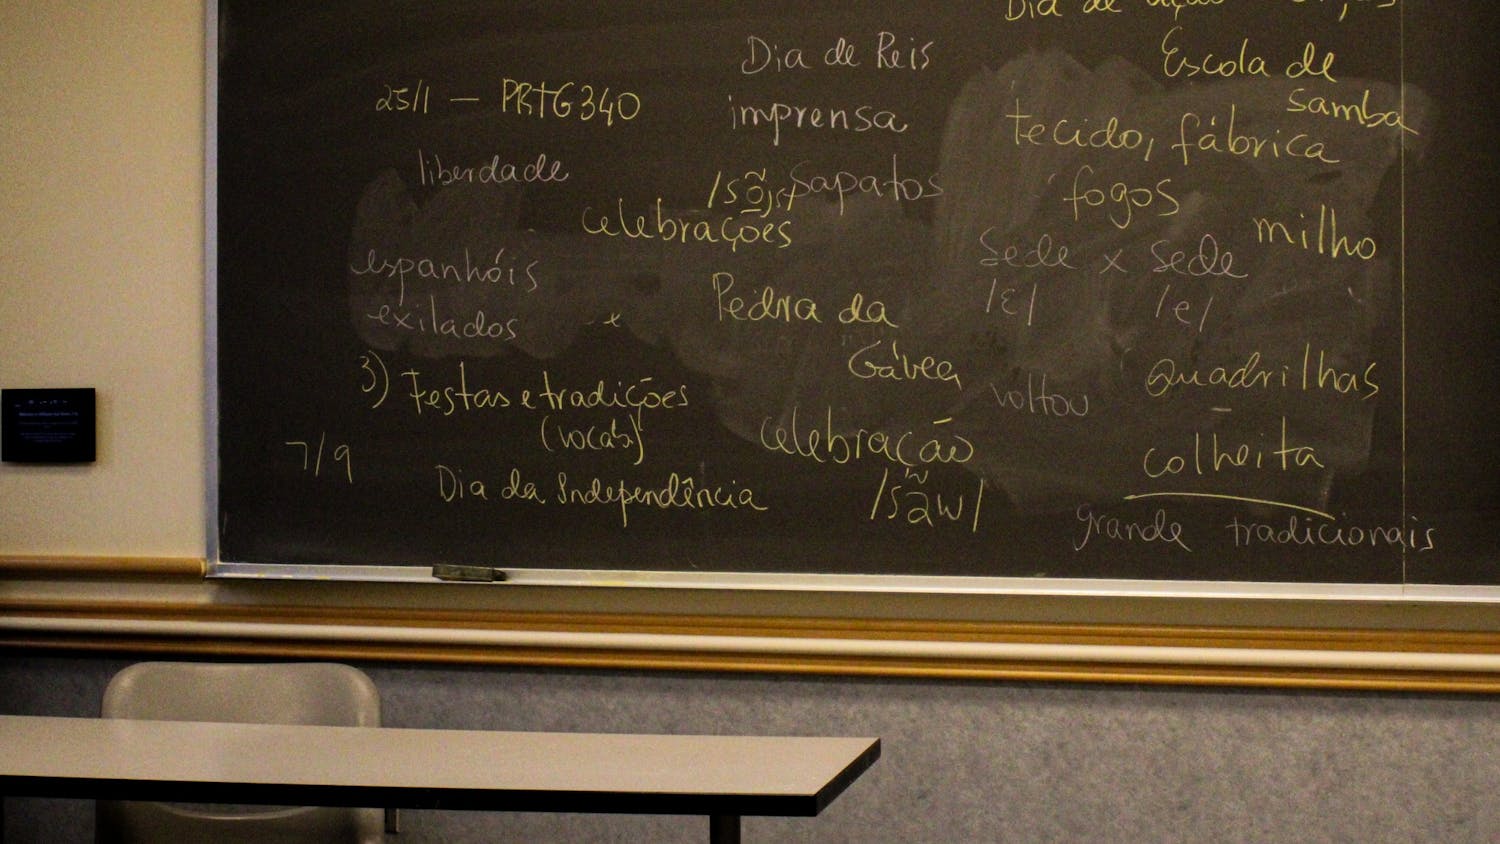 Dia de
Dia de Reis
Escola de
samba
25/1 — PRTG340
imprensa
tecido, fábrica
liberdade
/sõjs/
sapatos
fogos
celebrações
milho
espanhóis
exilados
sede x sede
/ɛ/ /e/
Pedra da
Gávea
voltou
Quadrilhas
3) Festas e tradições
(vocab)
celebração
/sãw/
colheita
7/9
Dia da Independência
grande tradicionais